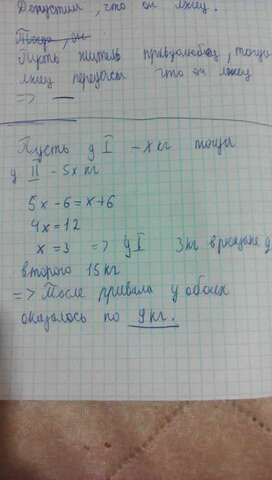 Допустим, что он лжец.
Тогда, он
Пусть житель правдолюбец, тогда
лжец передал что он лжец
=> —
Пусть у I - x кг тогда
у II - 5x кг
5x - 6 = x + 6
4x = 12
x = 3 => у I 3 кг в рюкзаке у
второго 15 кг
=> После привала у обоих
оказалось по 9 кг.